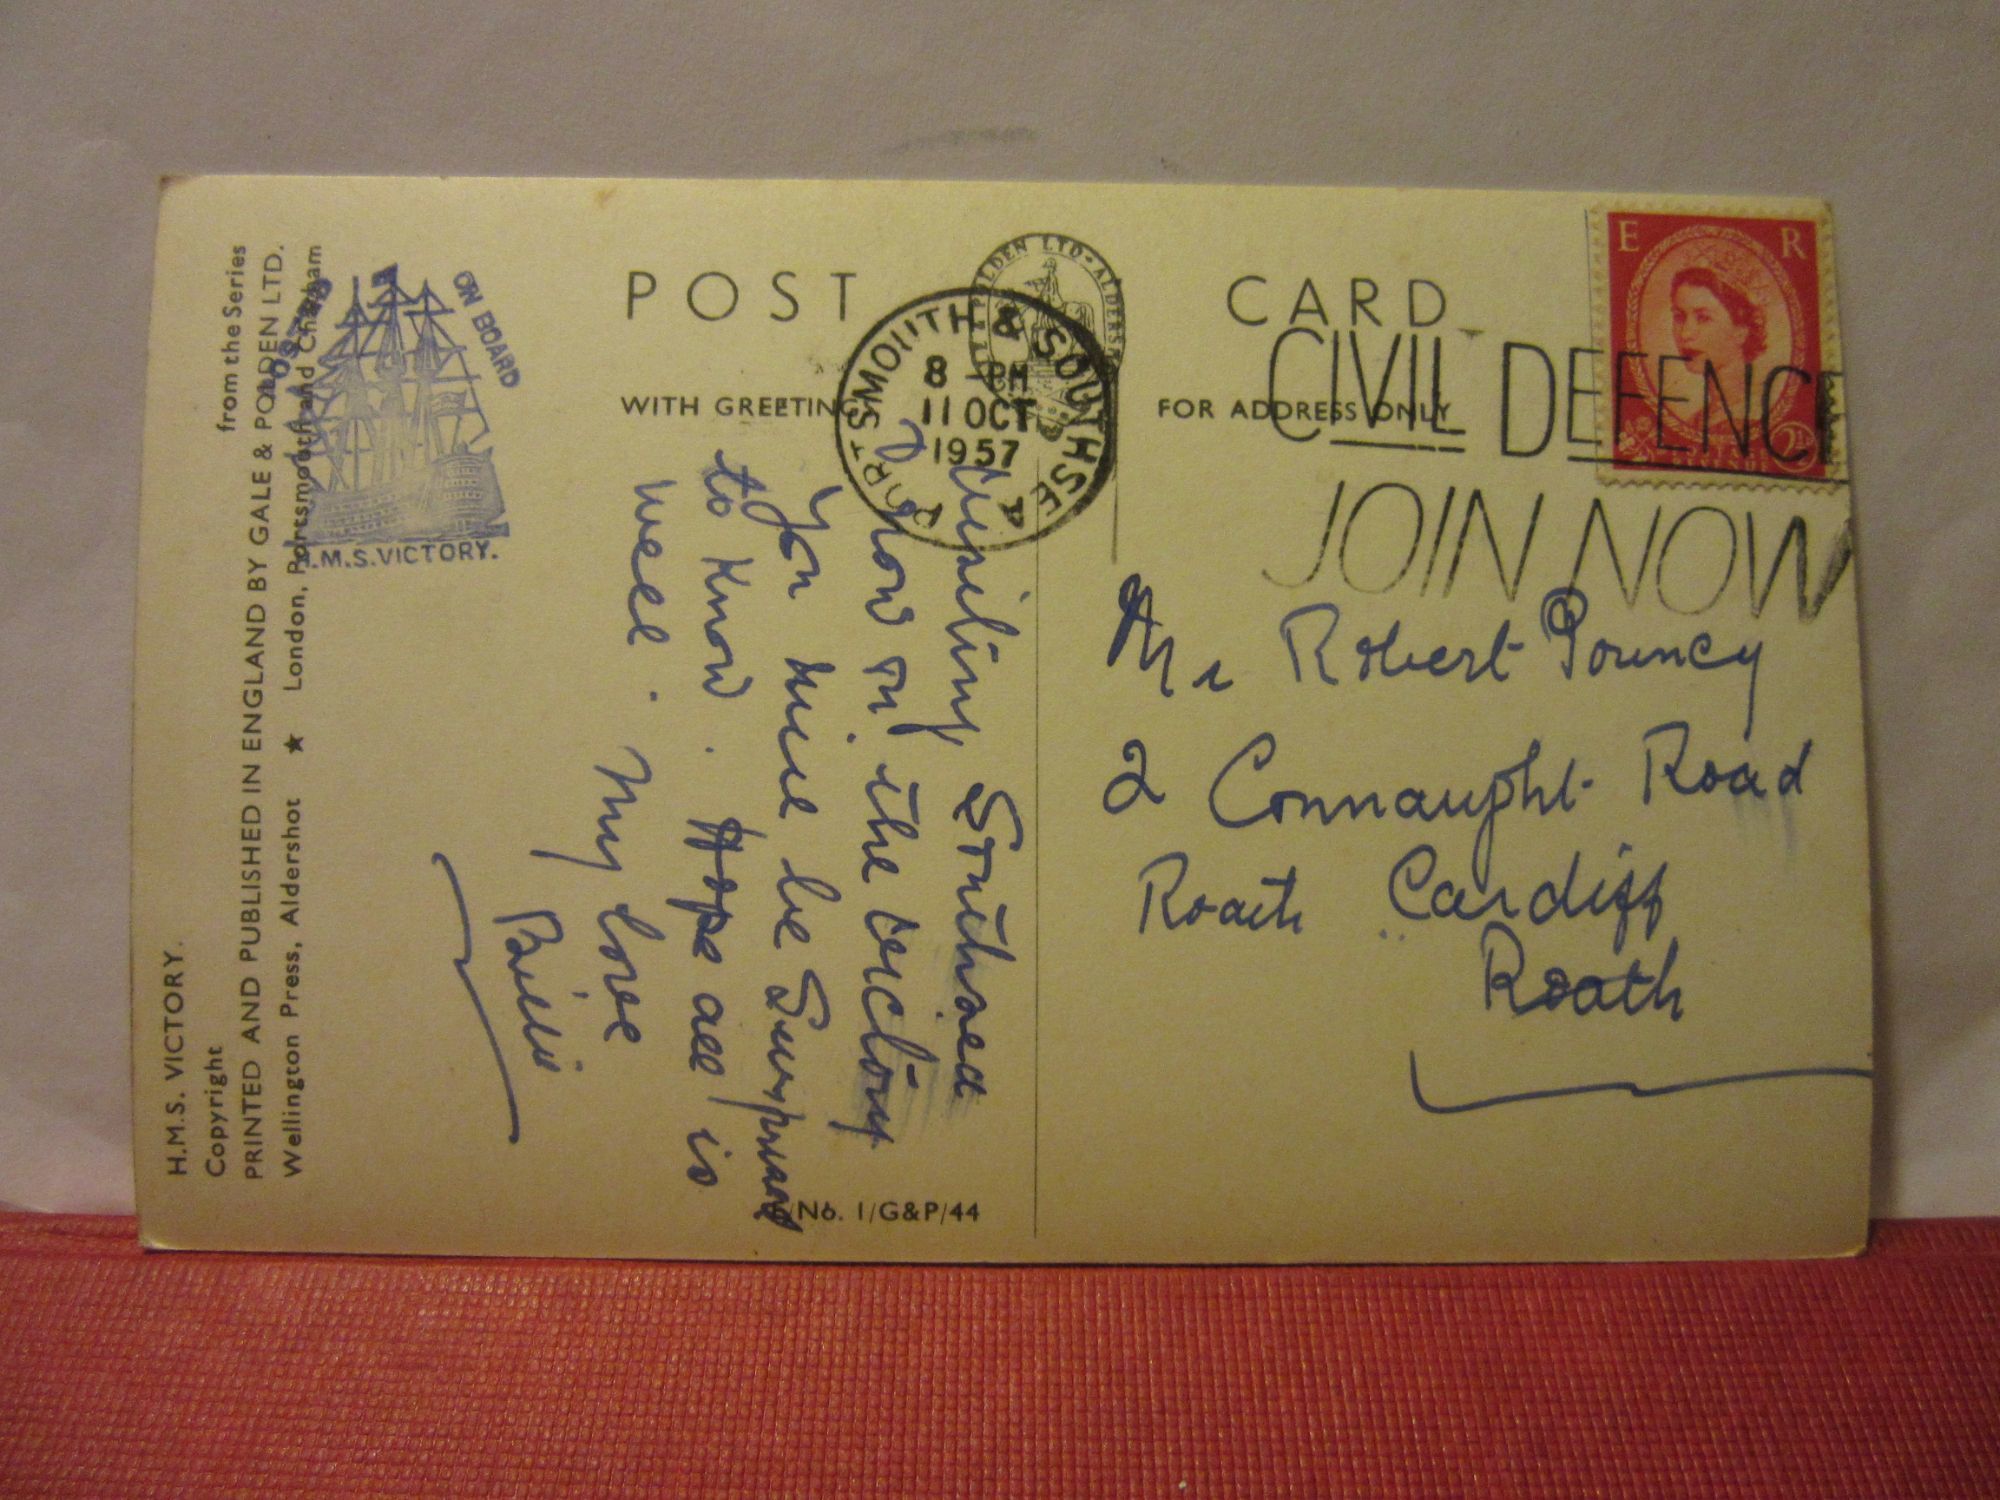 H.M.S. VICTORY.
Copyright from the Series
PRINTED AND PUBLISHED IN ENGLAND BY GALE & POLDEN LTD.
Wellington Press, Aldershot ★ London, Portsmouth and Chatham
POSTED ON BOARD
H.M.S. VICTORY.
POST CARD
WITH GREETING
FOR ADDRESS ONLY
POLDEN LTD - ALDERS
PORTSMOUTH & SOUTHSEA
8 PM
11 OCT
1957
CIVIL DEFENCE
JOIN NOW
E R
POSTAGE
REVENUE
2½D
Visiting Southsea
now on the Victory
You will be Surprised
to Know. Hope all is
well. My love
Billie
Mr Robert Pouncy
2 Connaught Road
Roath Cardiff
Roath
No. 1/G&P/44